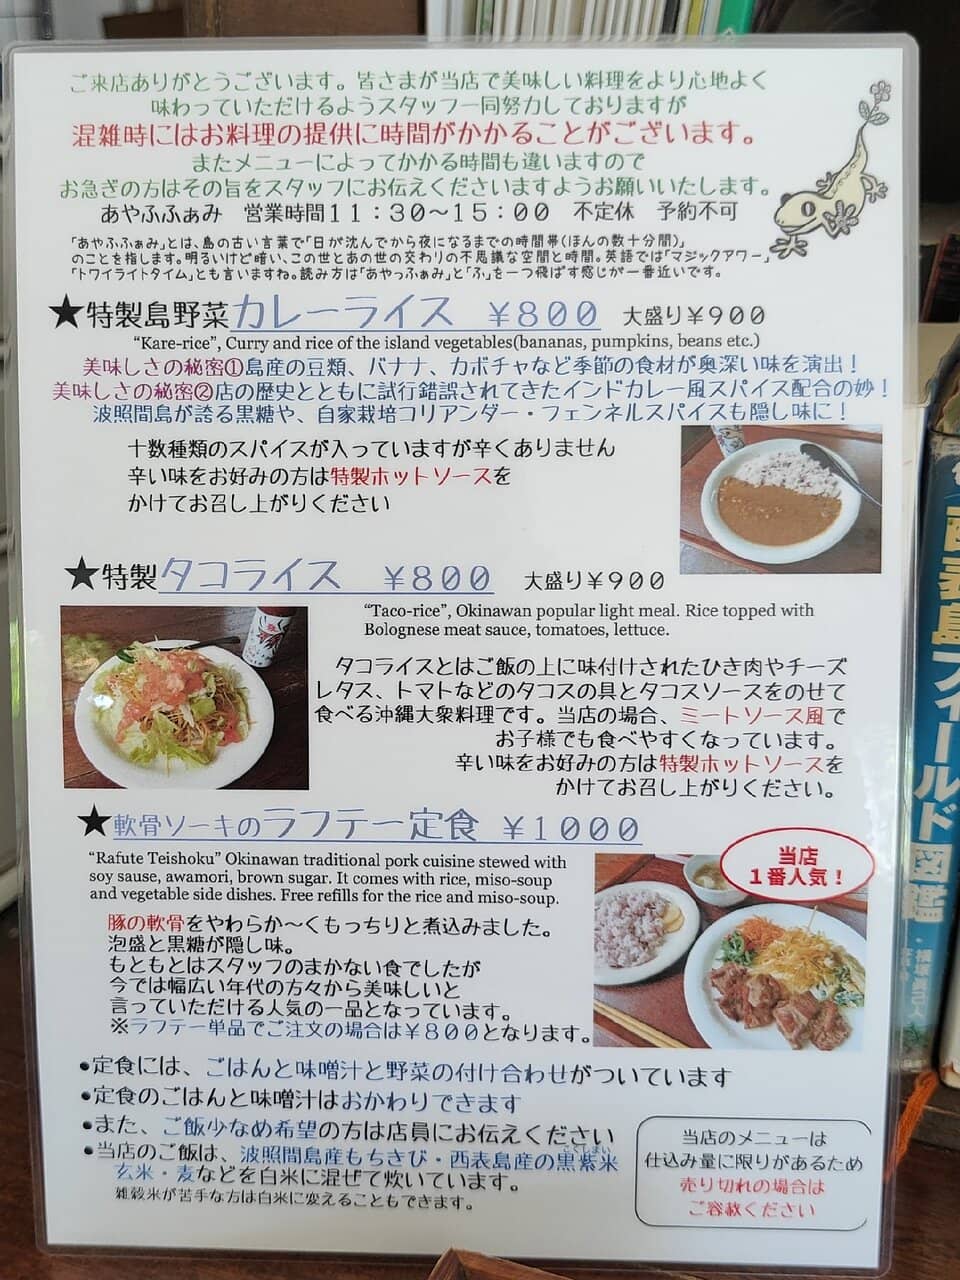 ご来店ありがとうございます。皆さまが当店で美味しい料理をより心地よく
味わっていただけるようスタッフ一同努力しておりますが
混雑時にはお料理の提供に時間がかかることがございます。
またメニューによってかかる時間も違いますので
お急ぎの方はその旨をスタッフにお伝えくださいますようお願いいたします。
あやふふぁみ 営業時間11:30～15:00 不定休 予約不可
「あやふふぁみ」とは、島の古い言葉で「日が沈んでから夜になるまでの時間帯(ほんの数十分間)」
のことを指します。明るいけど暗い、この世とあの世の交わりの不思議な空間と時間。英語では「マジックアワー」
「トワイライトタイム」とも言いますね。読み方は「あやっふぁみ」と「ふ」を一つ飛ばす感じが一番近いです。
★特製島野菜カレーライス ￥800 大盛り￥900
“Kare-rice”, Curry and rice of the island vegetables(bananas, pumpkins, beans etc.)
美味しさの秘密①島産の豆類、バナナ、カボチャなど季節の食材が奥深い味を演出！
美味しさの秘密②店の歴史とともに試行錯誤されてきたインドカレー風スパイス配合の妙！
波照間島が誇る黒糖や、自家栽培コリアンダー・フェンネルスパイスも隠し味に！
十数種類のスパイスが入っていますが辛くありません
辛い味をお好みの方は特製ホットソースを
かけてお召し上がりください
★特製タコライス ￥800 大盛り￥900
“Taco-rice”, Okinawan popular light meal. Rice topped with
Bolognese meat sauce, tomatoes, lettuce.
タコライスとはご飯の上に味付けされたひき肉やチーズ
レタス、トマトなどのタコスの具とタコスソースをのせて
食べる沖縄大衆料理です。当店の場合、ミートソース風で
お子様でも食べやすくなっています。
辛い味をお好みの方は特製ホットソースを
かけてお召し上がりください。
★軟骨ソーキのラフテー定食 ￥1000
“Rafute Teishoku” Okinawan traditional pork cuisine stewed with
soy sause, awamori, brown sugar. It comes with rice, miso-soup
and vegetable side dishes. Free refills for the rice and miso-soup.
当店
1番人気！
豚の軟骨をやわらか～くもっちりと煮込みました。
泡盛と黒糖が隠し味。
もともとはスタッフのまかない食でしたが
今では幅広い年代の方々から美味しいと
言っていただける人気の一品となっています。
※ラフテー単品でご注文の場合は￥800となります。
●定食には、ごはんと味噌汁と野菜の付け合わせがついています
●定食のごはんと味噌汁はおかわりできます
●また、ご飯少なめ希望の方は店員にお伝えください
●当店のご飯は、波照間島産もちきび・西表島産の黒紫米
玄米・麦などを白米に混ぜて炊いています。
雑穀米が苦手な方は白米に変えることもできます。
当店のメニューは
仕込み量に限りがあるため
売り切れの場合は
ご容赦ください
西表島フィールド図鑑